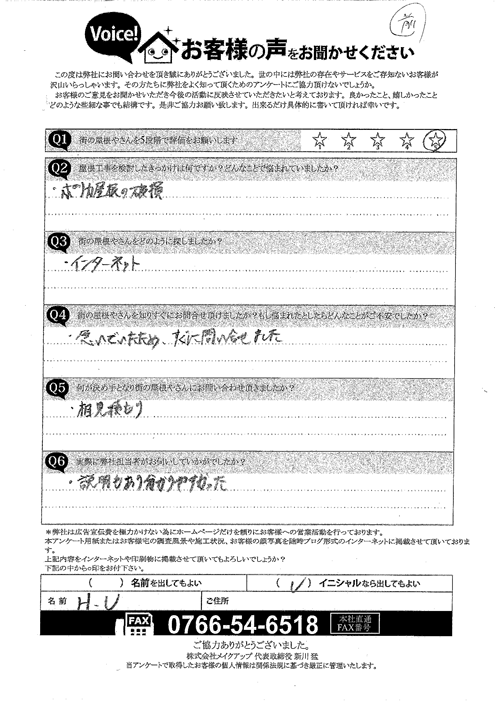 Voice!
お客様の声をお聞かせください
この度は弊社にお問い合わせを頂き誠にありがとうございました。世の中には弊社の存在やサービスをご存知ないお客様が
沢山いらっしゃいます。その方たちに弊社をよく知って頂くためのアンケートにご協力頂けないでしょうか。
お客様のご意見をお聞かせいただき今後の活動に反映させていただきたいと考えております。良かったこと、嬉しかったこと
どのような些細な事でも結構です。是非ご協力お願い致します。出来るだけ具体的に書いて頂ければ幸いです。
Q1 街の屋根やさんを5段階で評価をお願いします
Q2 屋根工事を検討したきっかけは何ですか?どんなことで悩まれていましたか?
・ポリカ屋根の破損
Q3 街の屋根やさんをどのように探しましたか?
・インターネット
Q4 街の屋根やさんを知りすぐにお問合せ頂けましたか?もし悩まれたとしたらどんなことがご不安でしたか?
・急いでいたため、すぐに問い合せました
Q5 何が決め手となり街の屋根やさんにお問い合わせ頂きましたか?
・相見積もり
Q6 実際に弊社担当者がお伺いしていかがでしたか?
・説明もあり分かりやすかった
*弊社は広告宣伝費を極力かけない為にホームページだけを頼りにお客様への営業活動を行っております。
本アンケート用紙またはお客様宅の調査風景や施工状況、お客様の顔写真を随時ブログ形式のインターネットに掲載させて頂いておりま
す。
上記内容をインターネットや印刷物に掲載させて頂いてもよろしいでしょうか?
下記の中から○印をお付下さい。
( ) 名前を出してもよい ( ) イニシャルなら出してもよい
名前 H-U ご住所
FAX 0766-54-6518 本社直通 FAX番号
ご協力ありがとうございました。
株式会社メイクアップ 代表取締役 新川 猛
当アンケートで取得したお客様の個人情報は関係法規に基づき厳正に管理いたします。